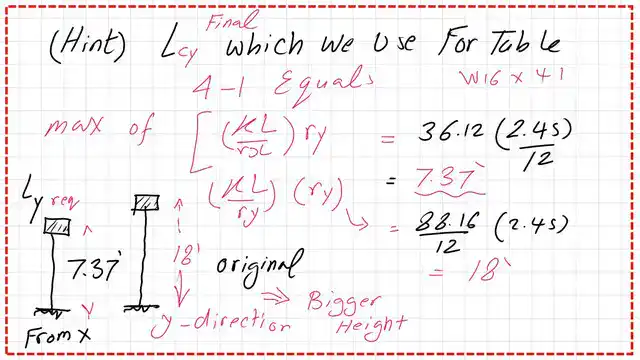 Final
(Hint) Lcy which we use For Table
4-1 Equals W16 x 41
max of [(KL/rx) ry = 36.12 (2.45)/12
= 7.37'
(KL/ry) (ry) = 88.16/12 (2.45)
= 18'
Ly req
7.37'
From x
18'
original
y-direction ⇒ Bigger Height